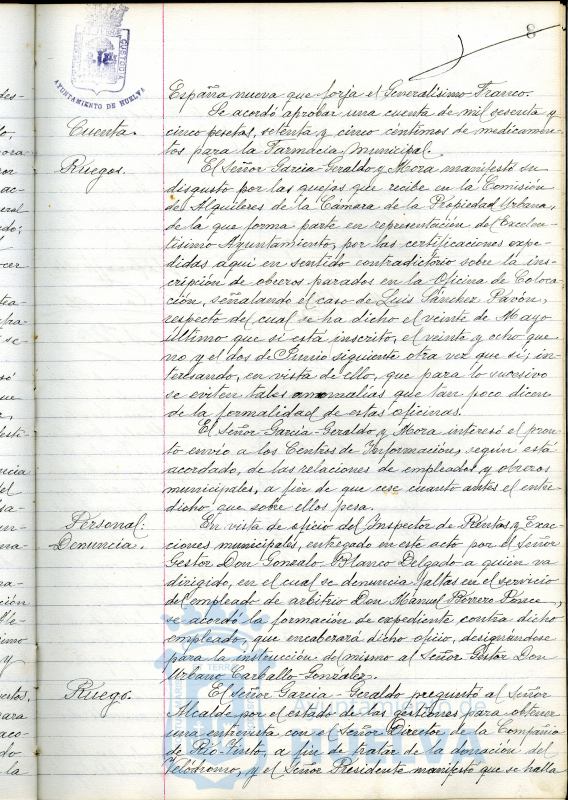 8
CUSTODIA
AYUNTAMIENTO DE HUELVA
España nueva que forja el Generalísimo Franco.
Cuenta.
Se acordó aprobar una cuenta de mil sesenta y
cinco pesetas, setenta y cinco céntimos de medicamen-
tos para la Farmacia Municipal.
Ruegos.
El Señor Garcia-Geraldo y Mora manifestó su
disgusto por las quejas que recibe en la Comisión
de Alquileres de la Cámara de la Propiedad Urbana,
de la que forma parte en representación del Excelen-
tísimo Ayuntamiento, por las certificaciones expe-
didas aqui en sentido contradictorio sobre la ins-
cripción de obreros parados en la Oficina de Coloca-
ción, señalando el caso de Luis Sánchez Pavón,
respecto del cual se ha dicho el veinte de Mayo
último que si está inscrito, el veinte y ocho que
no y el dos de Junio siguiente otra vez que si; in-
teresando, en vista de ello, que para lo sucesivo
se eviten tales anomalías que tan poco dicen
de la formalidad de estas oficinas.
El Señor Garcia-Geraldo y Mora interesó el pron-
to envio a los Centros de Información, según está
acordado, de las relaciones de empleados y obreros
municipales, a fin de que cese cuanto antes el entre-
dicho que sobre ellos pesa.
Personal:
Denuncia.
En vista de oficio del Inspector de Rentas y Exac-
ciones municipales, entregado en este acto por el Señor
Gestor Don Gonzalo Blanco Delgado a quien va
dirigido, en el cual se denuncia faltas en el servicio
del empleado de arbitrio Don Manuel Borrero Ponce,
se acordó la formación de expediente contra dicho
empleado, que encabezará dicho oficio, designándose
para la instrucción del mismo al Señor Gestor Don
Urbano Carballo González.
Ruego.
El Señor Garcia-Geraldo preguntó al Señor
Alcalde por el estado de las gestiones para obtener
una entrevista con el Señor Director de la Compañia
de Rio-Tinto, a fin de tratar de la donación del
Velódromo, y el Señor Presidente manifestó que se halla
Ayuntamiento de
HUELVA